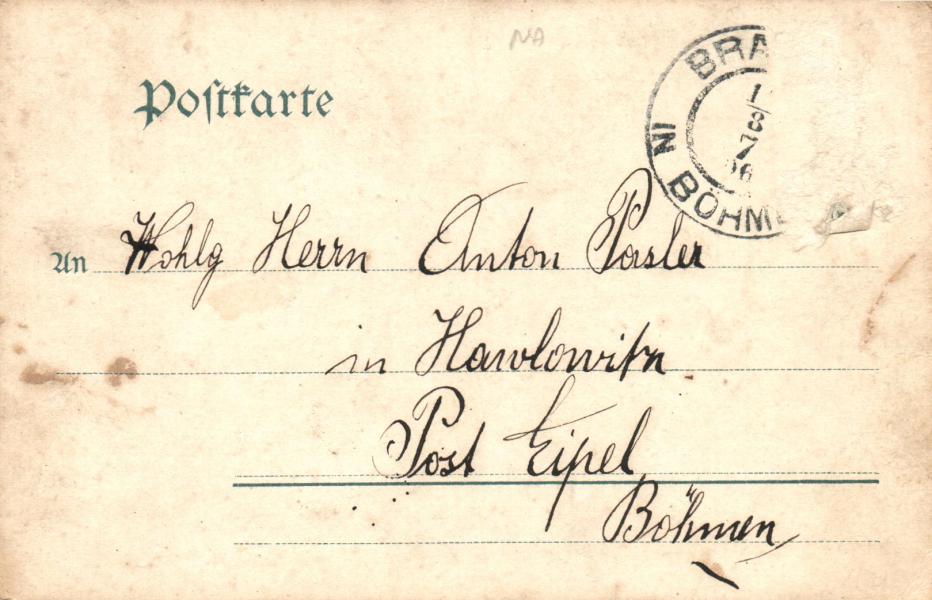 NA
Postkarte
BRA
1/8
7
06
IN BÖHME
An Wohlg Herrn Anton Pasler
in Hawlowitz
Post Eipel
Böhmen